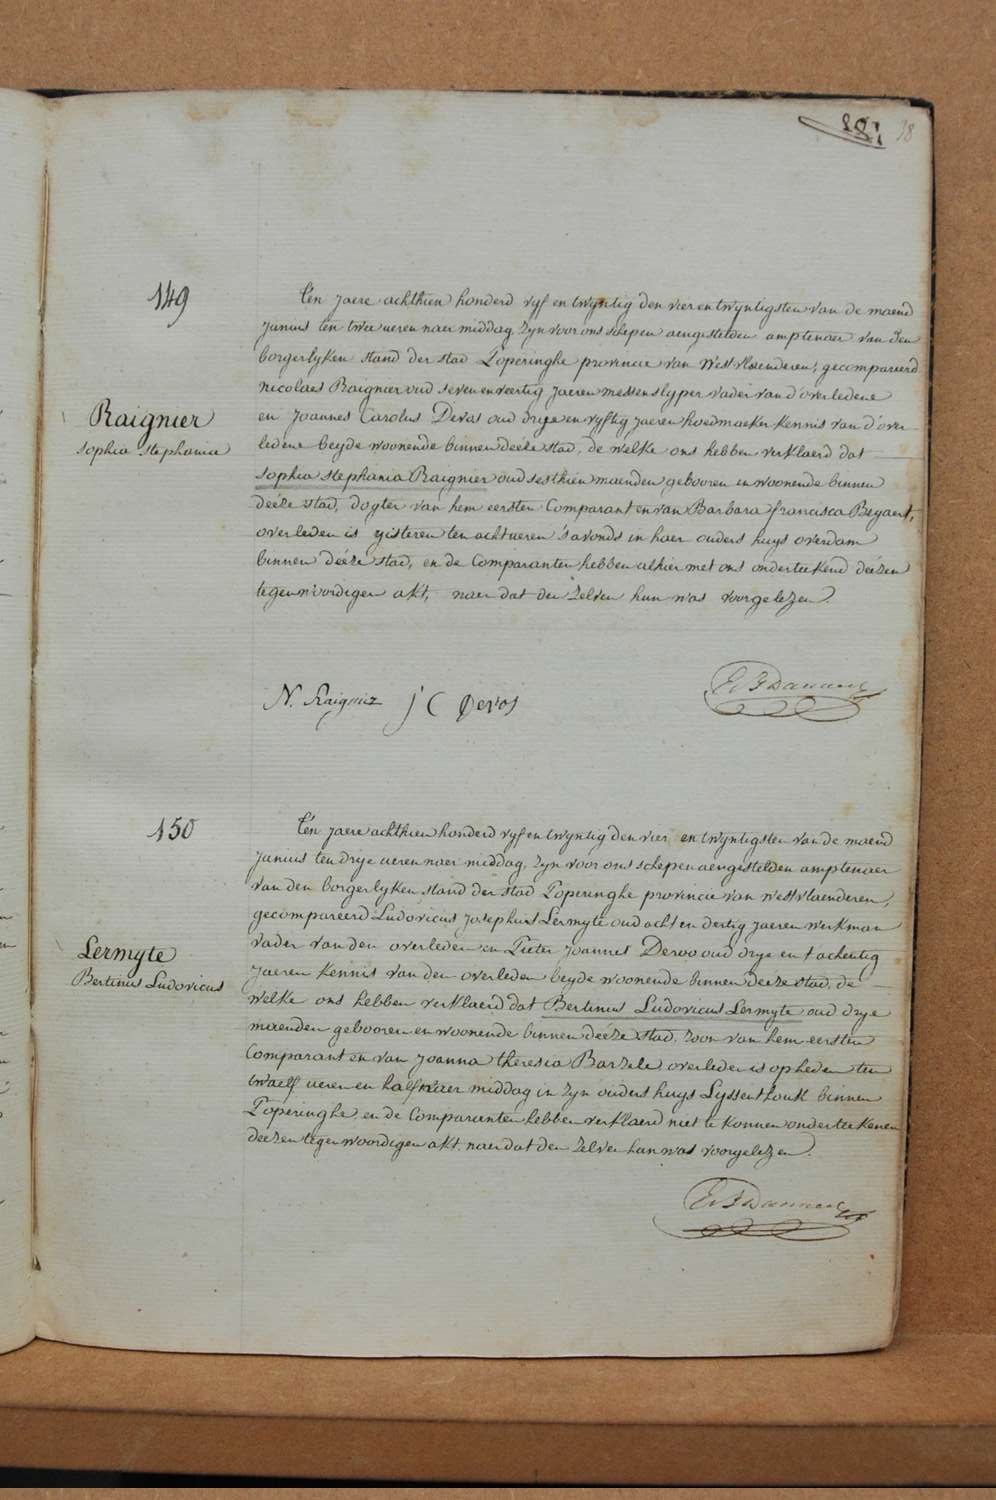 38
149
Raignier
sophia stephania
Ten jaere achthien honderd vyf en twyntig den vier en twyntigsten van de maend
Junius ten twee ueren naer middag, zyn voor ons schepen aengestelden amptenaer van den
borgerlyken stand der stad Poperinghe provincie van westvlaenderen, gecompareerd
nicolaes Raignier oud seven en veertig jaeren messenslyper vader van d'overledene
en Joannes Carolus Devos oud drye en vyftig jaeren hoedmaeker kennis van d'over
ledene beyde woonende binnen deéze stad, de welke ons hebben verklaerd dat
sophia stephania Raignier oud sesthien maenden gebooren en woonende binnen
deéze stad, dogter van hem eersten Comparant en van Barbara francisca Begaert,
overleden is gisteren ten acht ueren s'avonds in haer ouders huys overdam
binnen deéze stad, en de Comparanten hebben alhier met ons onderteekend deézen
tegenwoordigen akt, naer dat den zelven hun was voorgelezen.
N. Raignier J C Devos
150
Lermyte
Bertinus Ludovicus
Ten jaere achthien honderd vyf en twyntig den vier en twyntigsten van de maend
Junius ten drye ueren naer middag, zyn voor ons schepen aengestelden amptenaer
van den borgerlyken stand der stad Poperinghe provincie van westvlaenderen,
gecompareerd Ludovicus Josephus Lermyte oud acht en dertig jaeren werkman
vader van den overleden en Pieter Joannes Deroo oud drye en tachentig
jaeren kennis van den overleden beyde woonende binnen deeze stad, de
welke ons hebben verklaerd dat Bertinus Ludovicus Lermyte oud drye
maenden gebooren en woonende binnen deéze stad, zoon van hem eersten
Comparant en van Joanna theresia Barzele overleden is op heden ten
twaelf ueren en half naer middag in zyn ouders huys Lyssenthouk binnen
Poperinghe en de Comparanten hebben verklaerd niet te konnen onderteekenen
deezen tegenwoordigen akt. naer dat den zelven hun was voorgelezen.